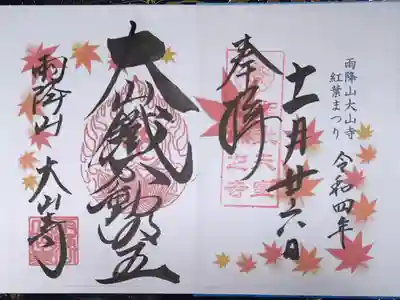 雨降山大山寺
紅葉まつり
令和四年
十一月廿六日
奉拝
大山鐵不動明王
雨降山
大山寺